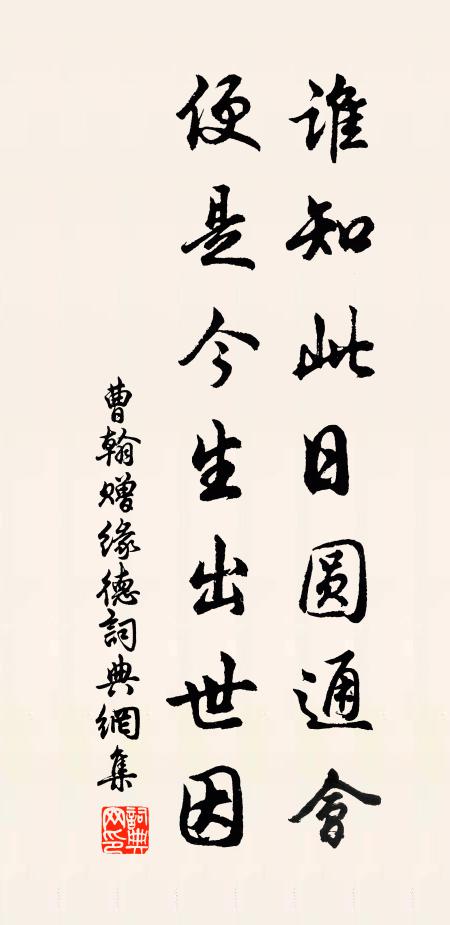 谁知此日圆通會
便是今生出世因
曹翰赠缘德詞典網集
詞典
网印